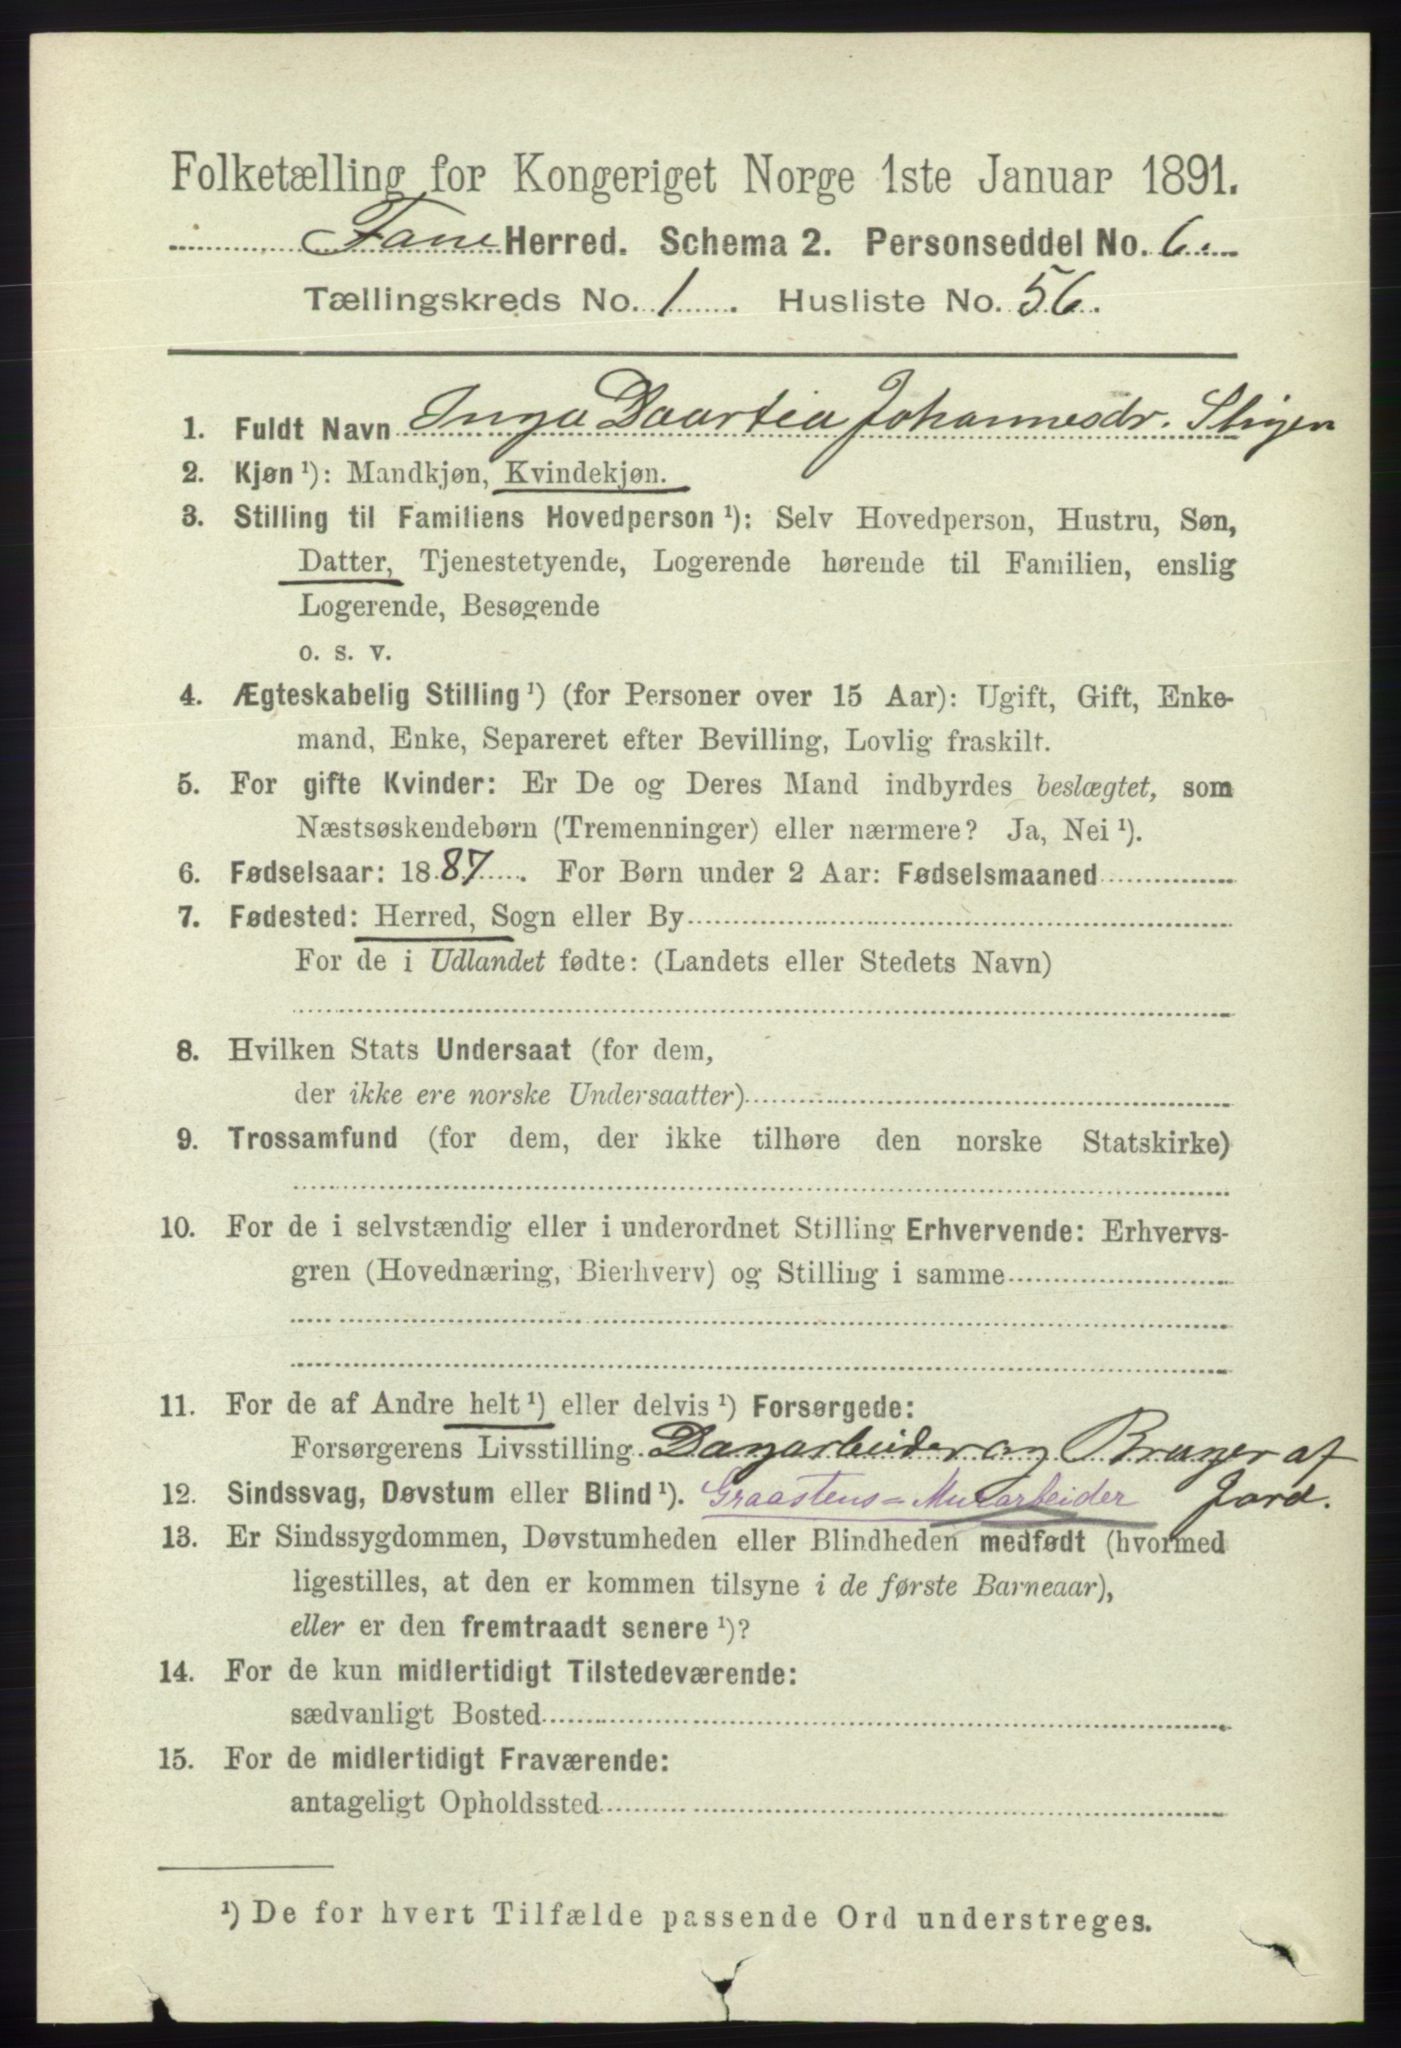 Folketælling for Kongeriget Norge 1ste Januar 1891.
Fane Herred. Schema 2. Personseddel No. 6.
Tællingskreds No. 1. Husliste No. 56.
1. Fuldt Navn Inga Daartea Johannesdr. Stigen
2. Kjøn ¹): Mandkjøn, Kvindekjøn.
3. Stilling til Familiens Hovedperson ¹): Selv Hovedperson, Hustru, Søn,
Datter, Tjenestetyende, Logerende hørende til Familien, enslig
Logerende, Besøgende
o. s. v.
4. Ægteskabelig Stilling ¹) (for Personer over 15 Aar): Ugift, Gift, Enke-
mand, Enke, Separeret efter Bevilling, Lovlig fraskilt.
5. For gifte Kvinder: Er De og Deres Mand indbyrdes beslægtet, som
Næstsøskendebørn (Tremenninger) eller nærmere? Ja, Nei ¹).
6. Fødselsaar: 1887. For Børn under 2 Aar: Fødselsmaaned
7. Fødested: Herred, Sogn eller By
For de i Udlandet fødte: (Landets eller Stedets Navn)
8. Hvilken Stats Undersaat (for dem,
der ikke ere norske Undersaatter)
9. Trossamfund (for dem, der ikke tilhøre den norske Statskirke)
10. For de i selvstændig eller i underordnet Stilling Erhvervende: Erhvervs-
gren (Hovednæring, Bierhverv) og Stilling i samme
11. For de af Andre helt ¹) eller delvis ¹) Forsørgede:
Forsørgerens Livsstilling Dagarbeider og Bruger af
12. Sindssvag, Døvstum eller Blind ¹). Graastens=Murarbeider Jord.
13. Er Sindssygdommen, Døvstumheden eller Blindheden medfødt (hvormed
ligestilles, at den er kommen tilsyne i de første Barneaar),
eller er den fremtraadt senere ¹)?
14. For de kun midlertidigt Tilstedeværende:
sædvanligt Bosted
15. For de midlertidigt Fraværende:
antageligt Opholdssted
¹) De for hvert Tilfælde passende Ord understreges.